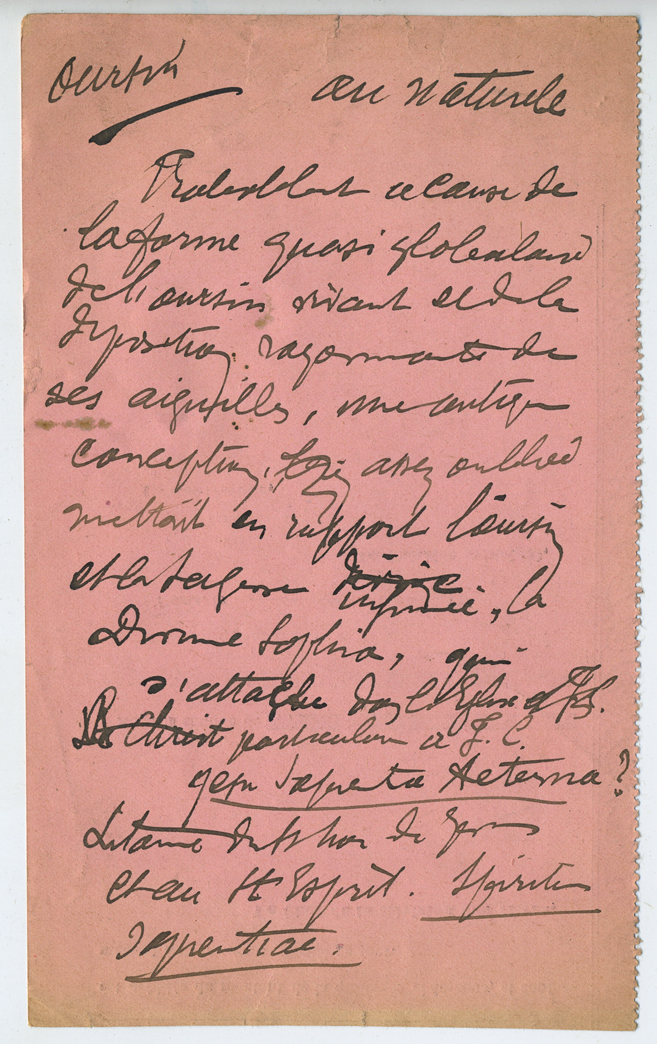 Oursin au naturele
Probablement a cause de
la forme quasi globulaire
de l'oursin vivant et de la
disposition rayonnante de
ses aiguilles, une antique
conception, assez oubliée
mettait en rapport l'oursin
et la sagesse divine
infinie, la
Divine Sophia, qui
s'attache dans l'Eglise
Christ particulier a J. C.
Jesu Sapientia Aeterna?
Litanie du St Nom de Jesus
et au St Esprit. Spiritus
Sapientiae.